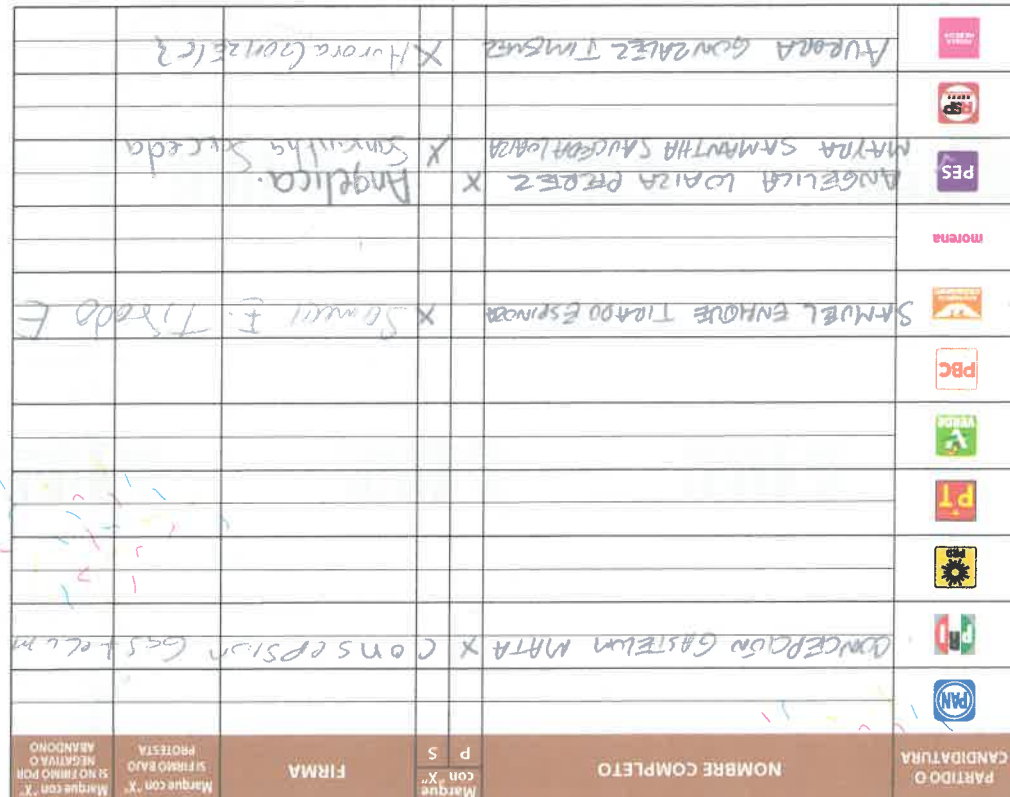 PARTIDO O CANDIDATURA NOMBRE COMPLETO Marque con "X" P S FIRMA Marque con "X" SI FIRMO BAJO PROTESTA Marque con "X" SI NO FIRMO POR NEGATIVA O ABANDONO
PAN
PRI CONCEPCIÓN GASTELUM MATA X Consepsion Gastelum
PRD
PT
VERDE
PBC
SAMUEL ENRIQUE TIRADO ESPINOZA X Samuel E. Tirado E
morena
PES ANGELICA LOAIZA PEREZ X Angelica.
MAYRA SAMANTHA SAUCEDA LOAIZA X Samantha Sauceda
RSP
AURORA GONZALEZ JIMENEZ X Aurora González